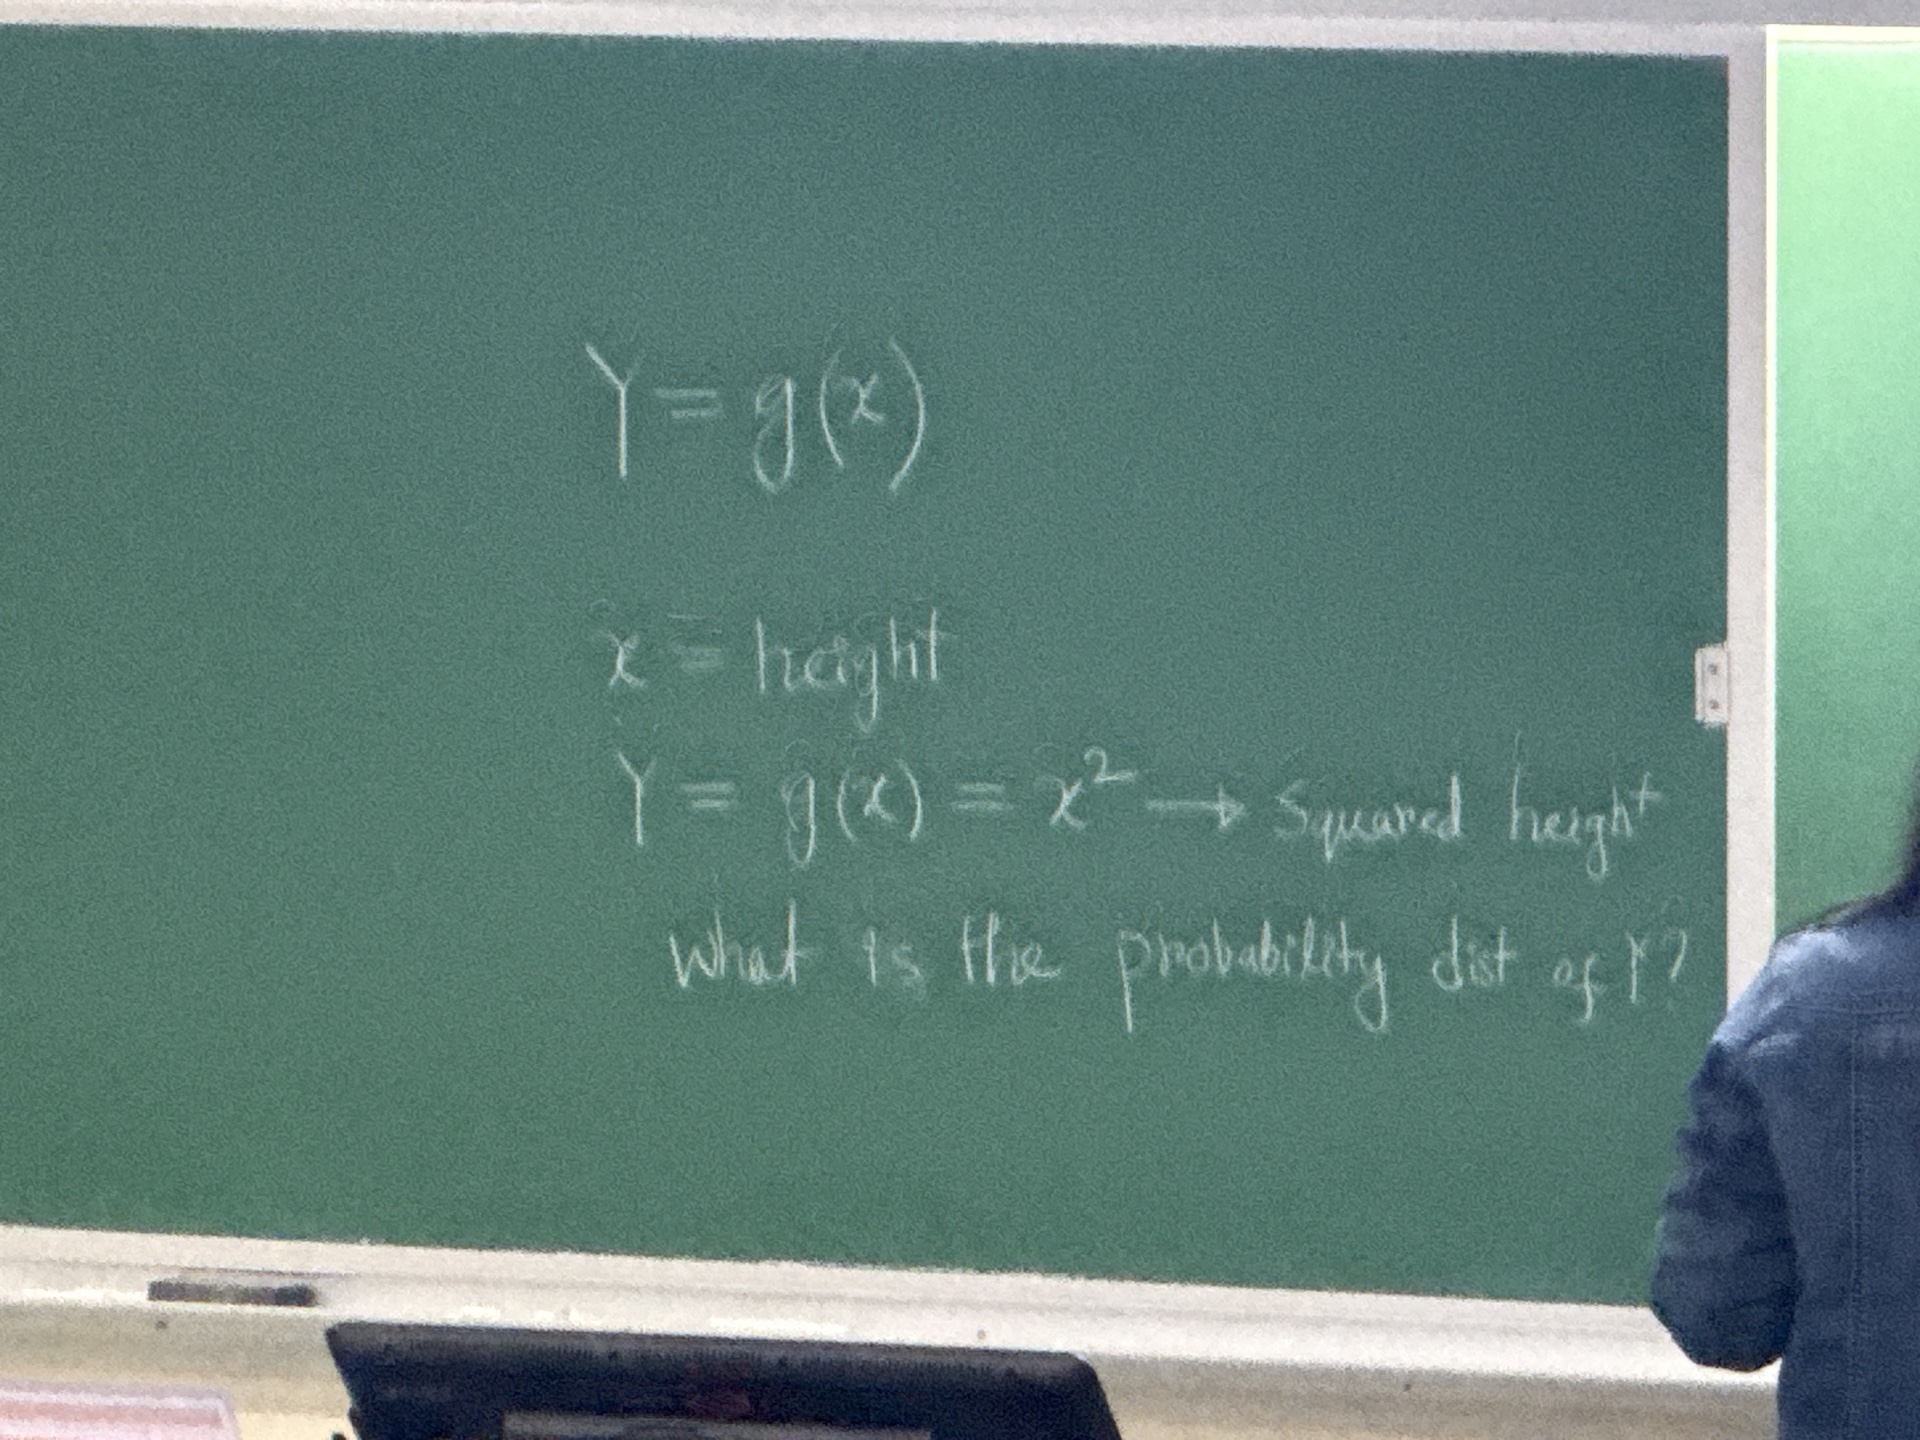 Y = g(x)
x = height
Y = g(x) = x² → Squared height
What is the probability dist of Y?